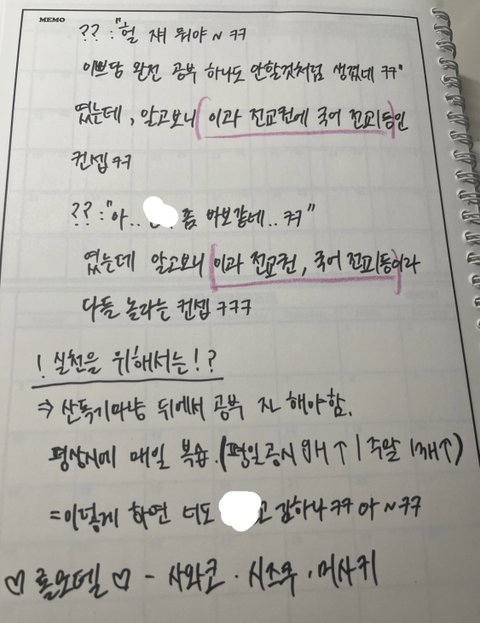 MEMO
?? : "헐 쟤 뭐야 ~ ㅋㅋ
이쁘당 완전 공부 하나도 안할것처럼 생겼네 ㅋㅋ"
였는데, 알고보니 이과 전교권에 국어 전교1등인
컨셉 ㅋㅋ
?? : "아.. 좀 바보같네.. ㅋㅋ"
였는데 알고보니 이과 전교권, 국어 전교1등이라
다들 놀라는 컨셉 ㅋㅋㅋ
! 실천을 위해서는 ! ?
⇒ 산독기마냥 뒤에서 공부 해야함.
평상시에 매일 복습. (평일 공시 9H ↑ / 주말 13H ↑)
= 이렇게 하면 너도 고 감하나 ㅋㅋ 아 ~ ㅋㅋ
♡ 롤모델 ♡ - 사와코 · 시즈쿠 ·